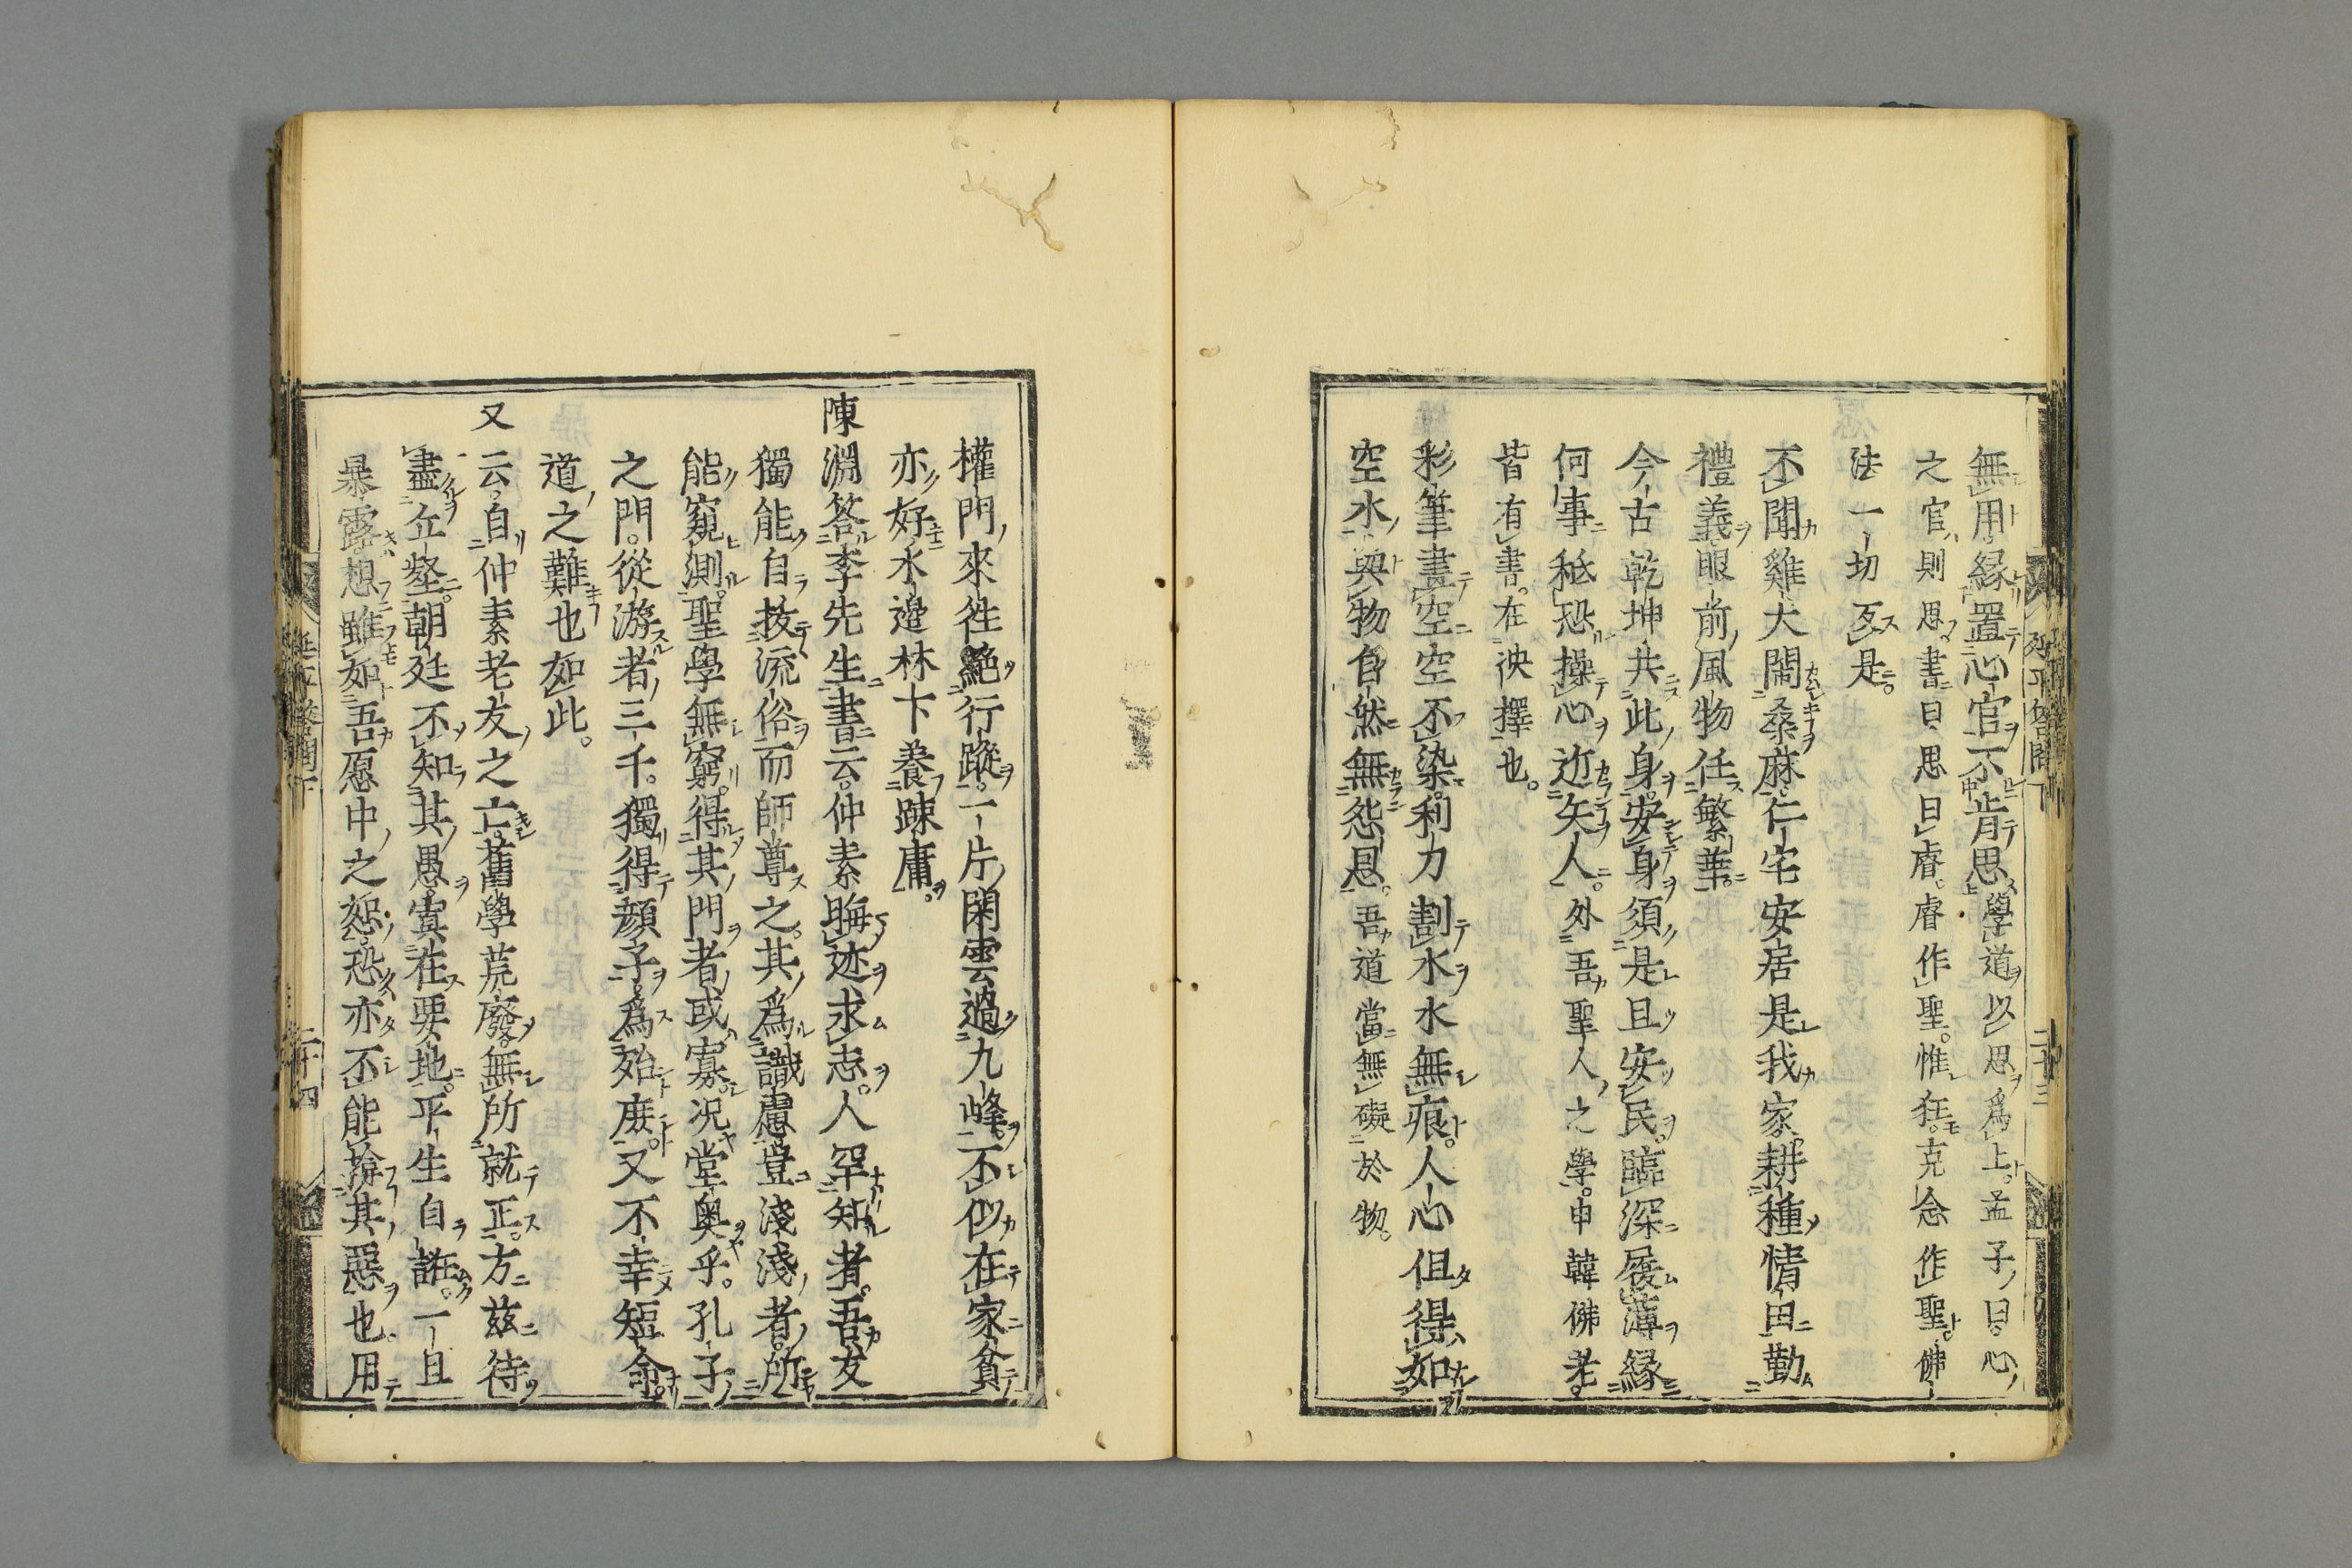 無用縁置心官不肯思學道以思爲上孟子曰心
之官則思書曰思曰睿睿作聖惟狂克念作聖佛
法一切反是
不聞雞犬閙桑麻仁宅安居是我家耕種情田勤
禮義眼前風物任繁華
今古乾坤共此身安身須是且安民臨深履薄縁
何事祗恐操心近矢人外吾聖人之學申韓佛老
皆有書在決擇也
彩筆畫空空不染利刀劃水水無痕人心但得如
空水與物自然無怨恩吾道當無礙於物
權門來往絶行蹤一片閑雲過九峰不似在家貧
亦好水邊林下養踈庸
陳淵答李先生書云仲素晦迹求志人罕知者吾友
獨能自抜流俗而師尊之其爲識慮豈淺淺者所
能窺測聖學無窮得其門者或寡况堂奥乎孔子
之門從游者三千獨得顔子爲殆庶又不幸短命
道之難也如此
又云自仲素老友之亡舊學荒廢無所就正方兹待
盡丘壑朝廷不知其愚寘在要地平生自誑一旦
暴露想雖如吾愿中之恕恐亦不能揜其惡也用
延平答問下
二十三
延平答問下
二十四